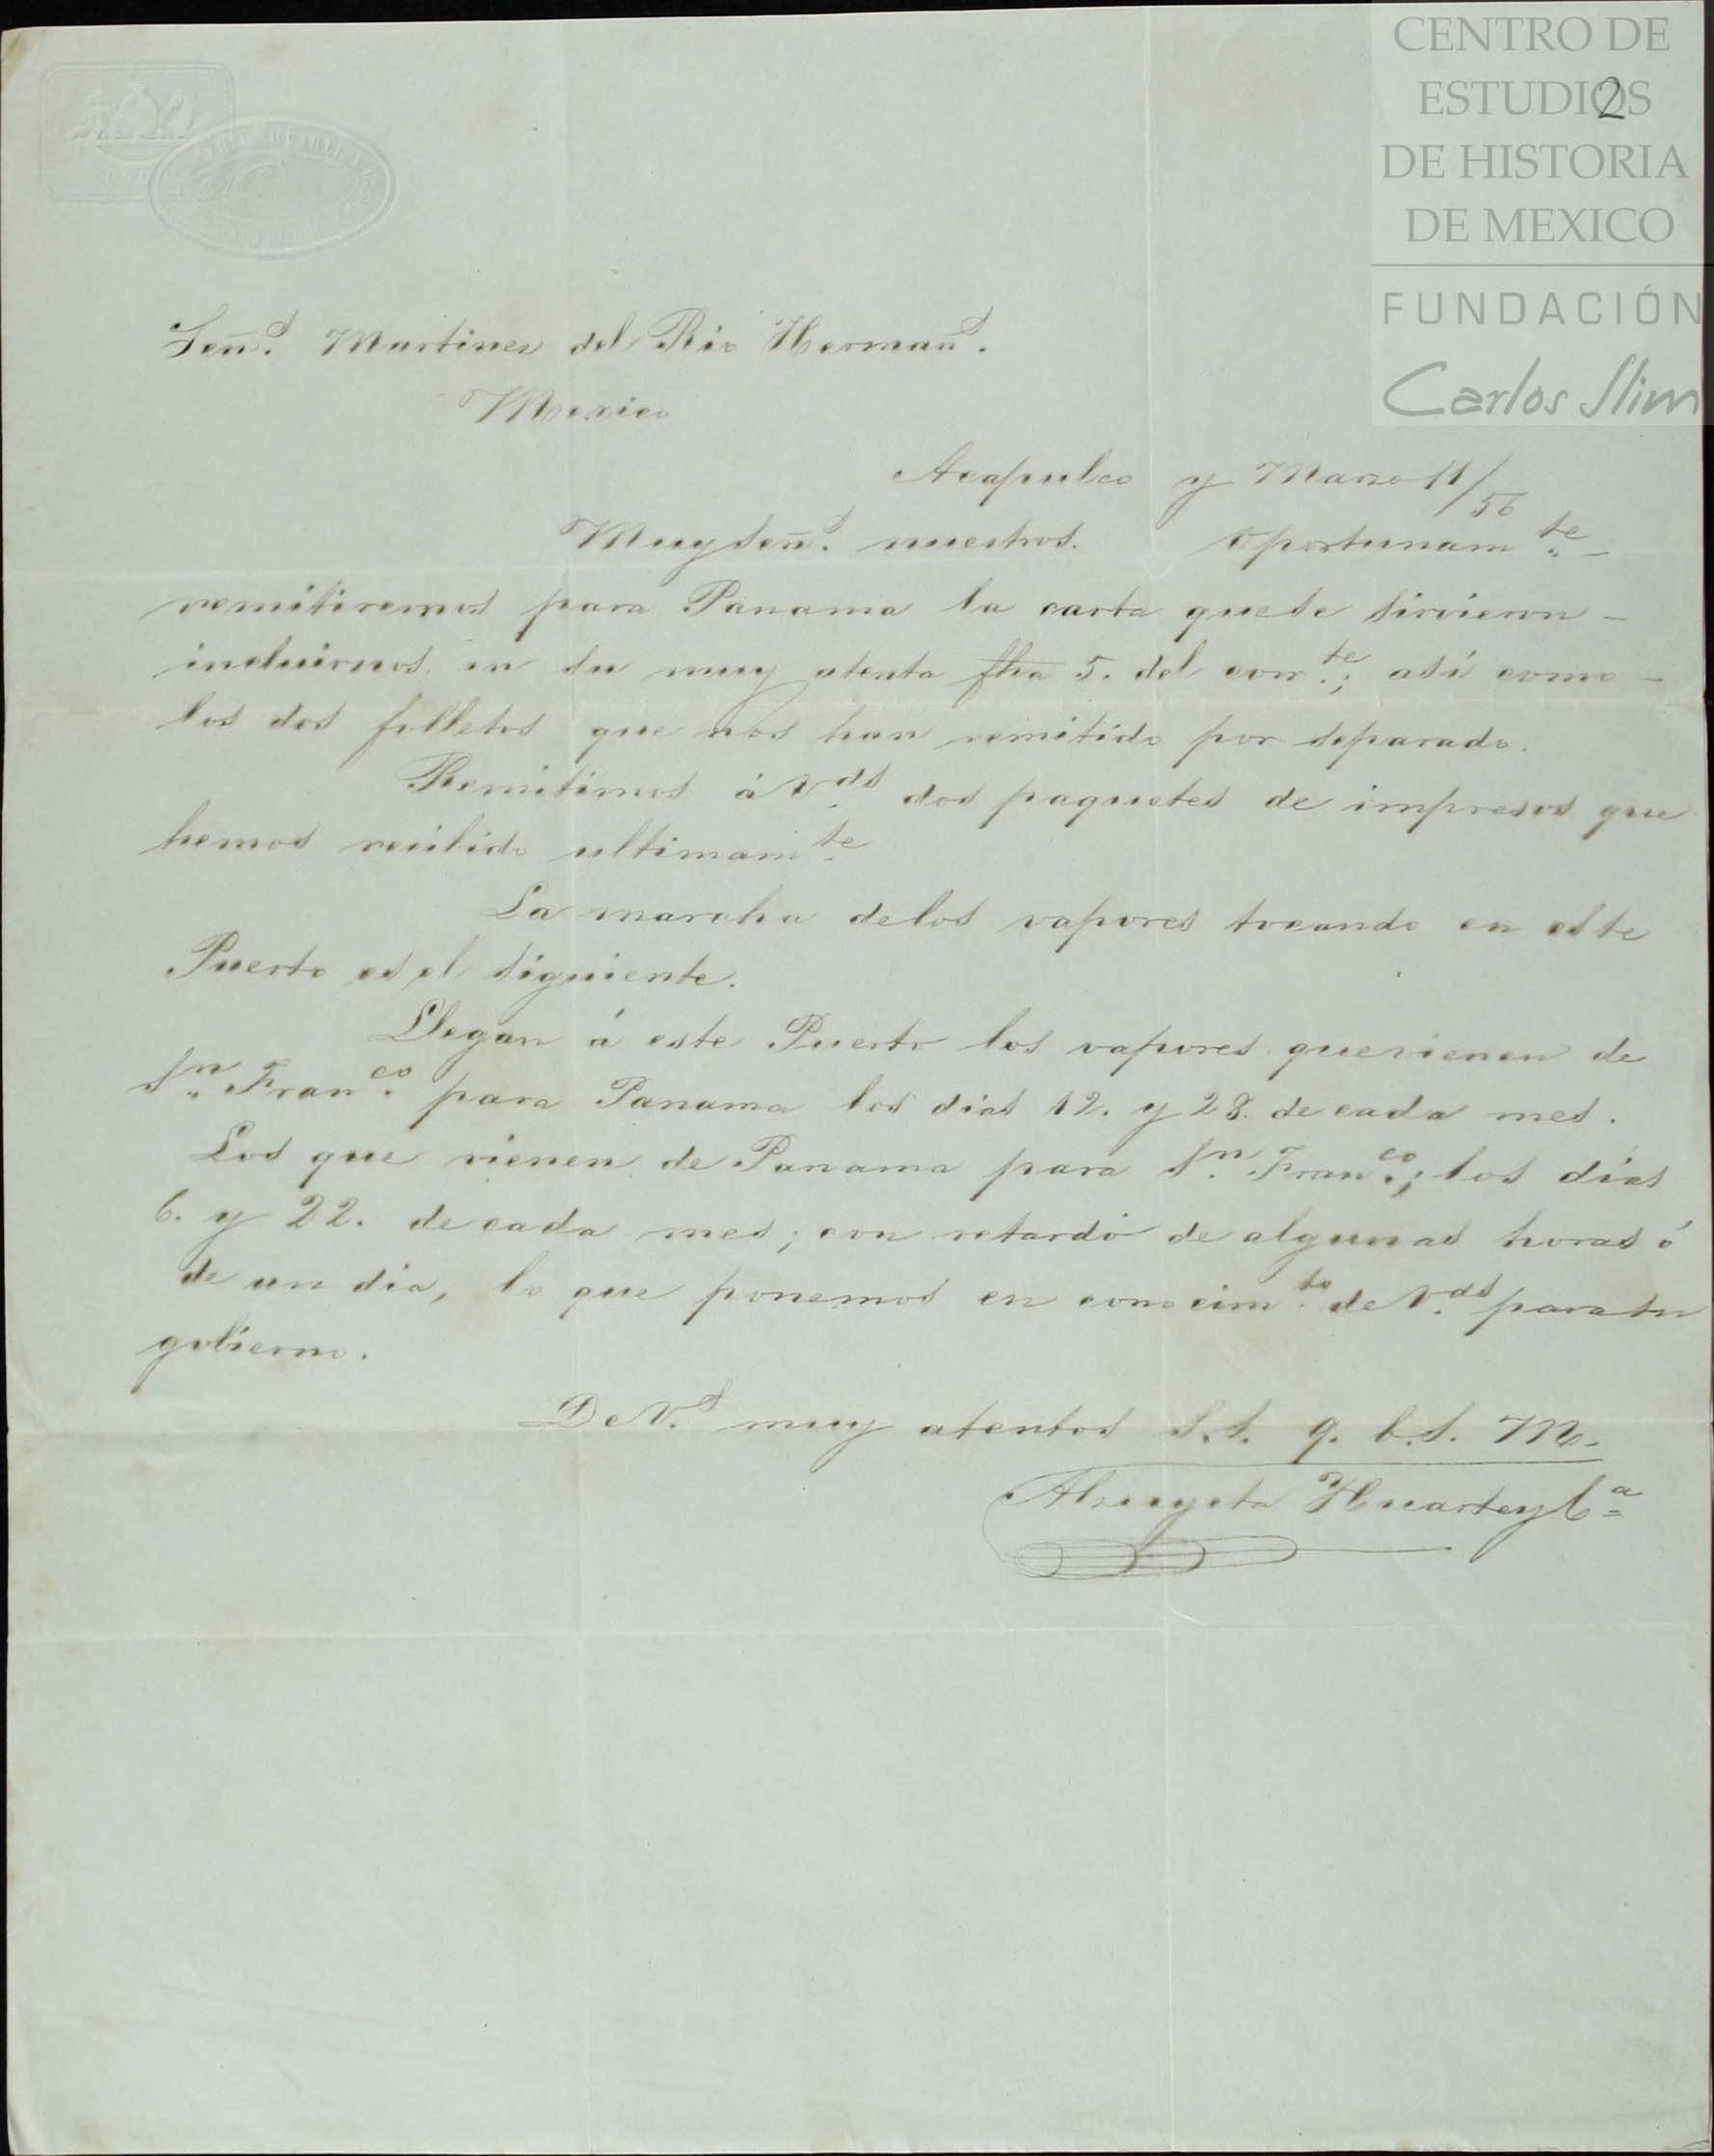 CENTRO DE
ESTUDIOS
DE HISTORIA
DE MEXICO
FUNDACIÓN
Carlos Slim
2
Señ.s Martinez del Rio Herman.s
Mexico
Acapulco y Marzo 11/56
Muy Señ.s nuestros. Oportunam.te
remitiremos para Panama la carta que se sirvieron
incluirnos en su muy atenta fha 5. del corr.te; asi como
los dos folletos que nos han remitido por separado.
Remitimos á V.ds dos paquetes de impresos que
hemos recibido ultimam.te
La marcha de los vapores tocando en este
Puerto es el siguiente.
Llegan á este Puerto los vapores que vienen de
S.n Fran.co para Panama los dias 12. y 28. de cada mes.
Los que vienen de Panama para S.n Fran.co; los dias
6. y 22. de cada mes; con retardo de algunas horas ó
de un dia, lo que ponemos en conocim.to de V.ds para su
gobierno.
De V.s muy atentos S.S. q. b. S. M.
Alzuyeta Huarte y C.a